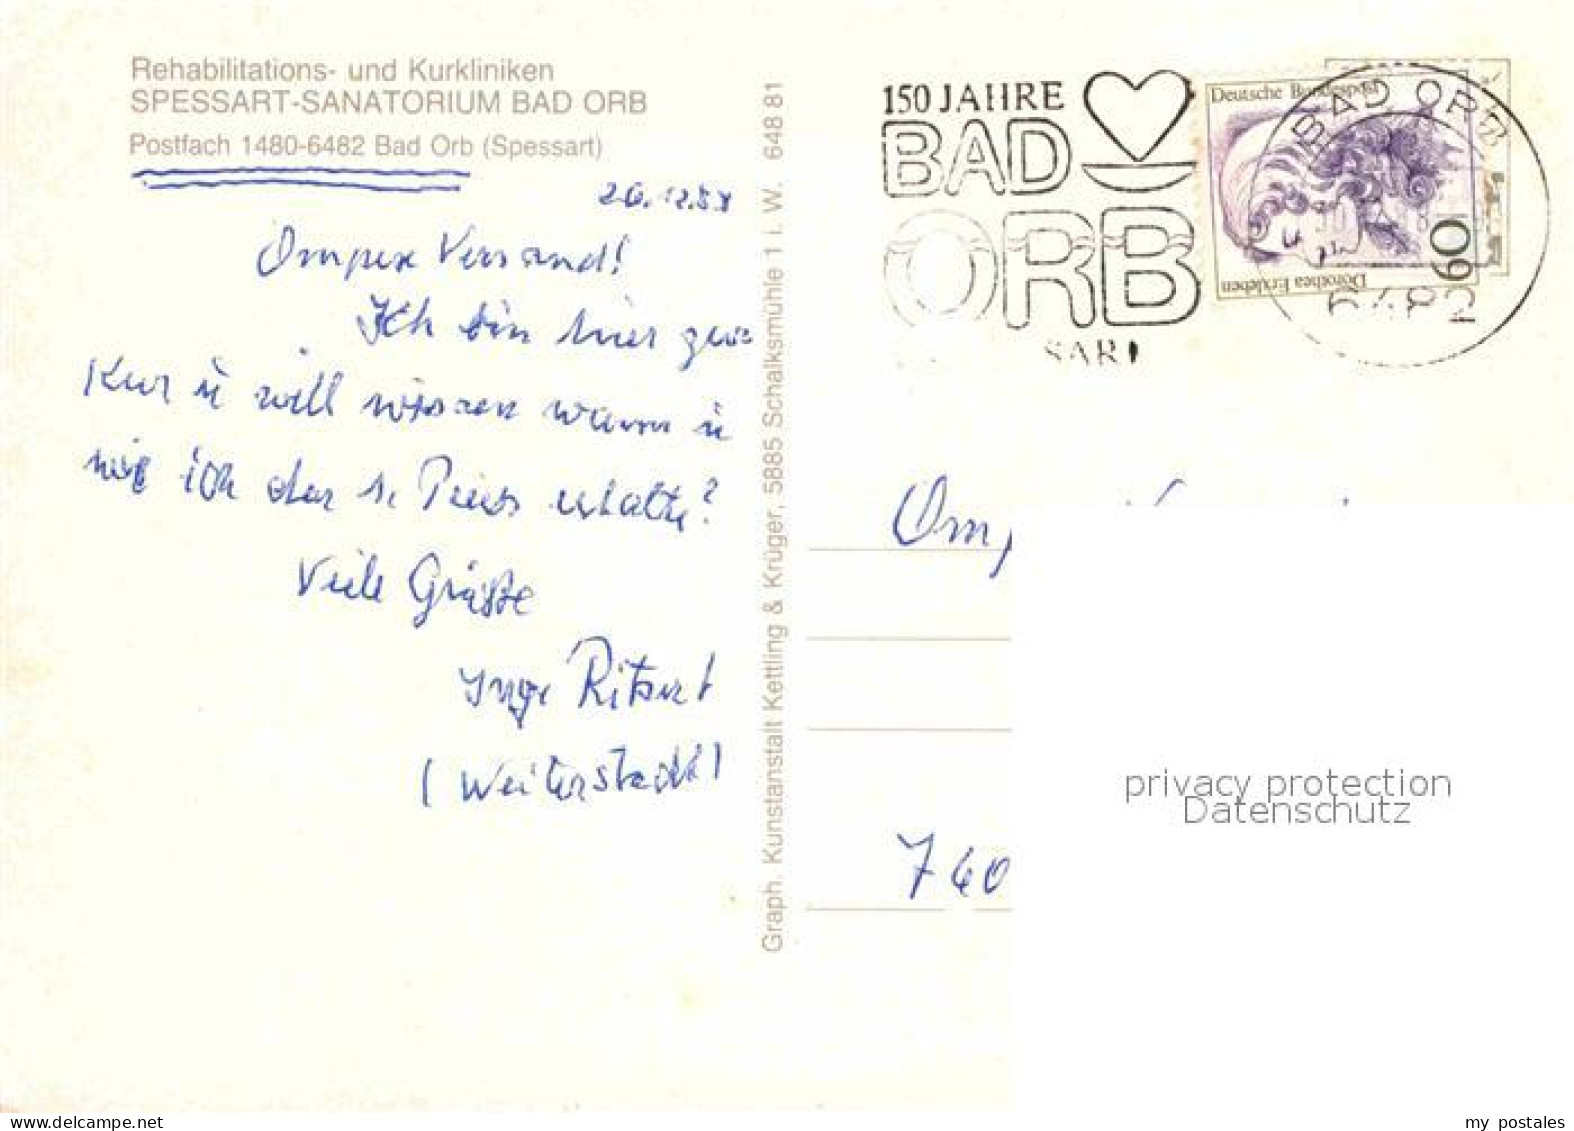 Rehabilitations- und Kurkliniken
SPESSART-SANATORIUM BAD ORB
Postfach 1480-6482 Bad Orb (Spessart)
Versand!
Ich bin hier zur
Kur ü will wissen wann ü
wie ich den 1. Preis erhalte?
Viele Grüße
Inge Ritzert
(Weiterstadt)
Graph. Kunstanstalt Kettling & Krüger, 5885 Schalksmühle 1 i. W. 648 81
150 JAHRE
BAD
ORB
Deutsche Bundespost
60
Dorothea Erxleben
BAD ORB
6482
740
privacy protection
Datenschutz
delcampe.net
my postales